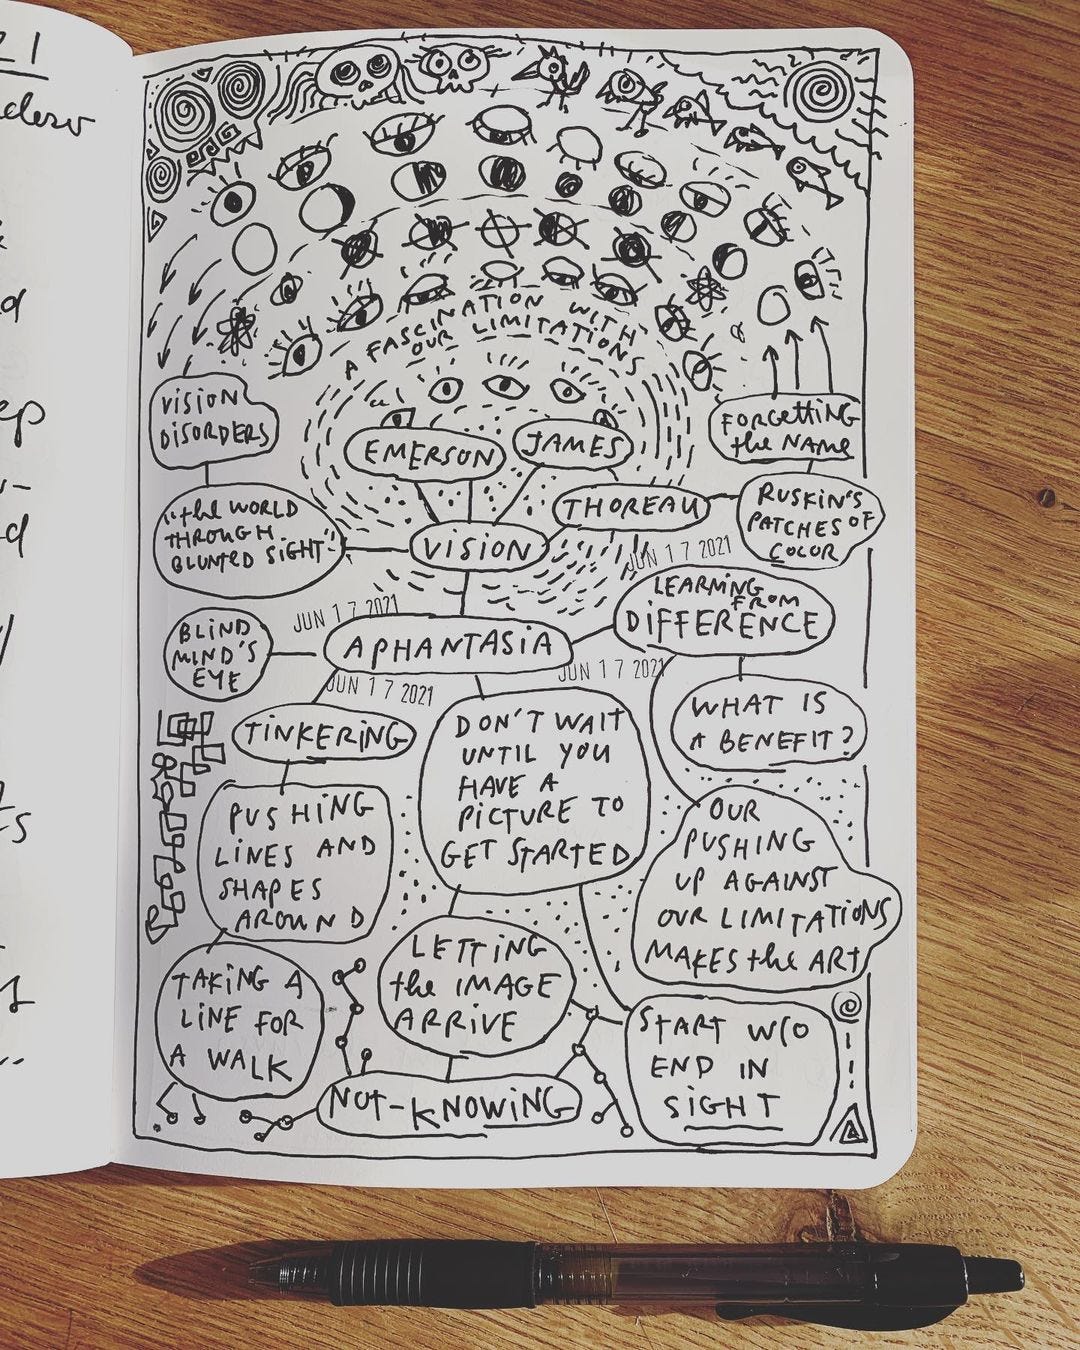 21
A FASCINATION WITH
OUR LIMITATIONS
VISION
DISORDERS
EMERSON
JAMES
FORGETTING
the NAME
THOREAU
RUSKIN'S
PATCHES OF
COLOR
"the WORLD
THROUGH
BLUNTED SIGHT"
VISION
JUN 17 2021
LEARNING
FROM
DIFFERENCE
JUN 17 2021
BLIND
MIND'S
EYE
APHANTASIA
JUN 17 2021
JUN 17 2021
WHAT IS
A BENEFIT?
TINKERING
DON'T WAIT
UNTIL YOU
HAVE A
PICTURE TO
GET STARTED
PUSHING
LINES AND
SHAPES
AROUND
OUR
PUSHING
UP AGAINST
OUR LIMITATIONS
MAKES the ART
TAKING A
LINE FOR
A WALK
LETTING
the IMAGE
ARRIVE
START W/O
END IN
SIGHT
NOT-KNOWING